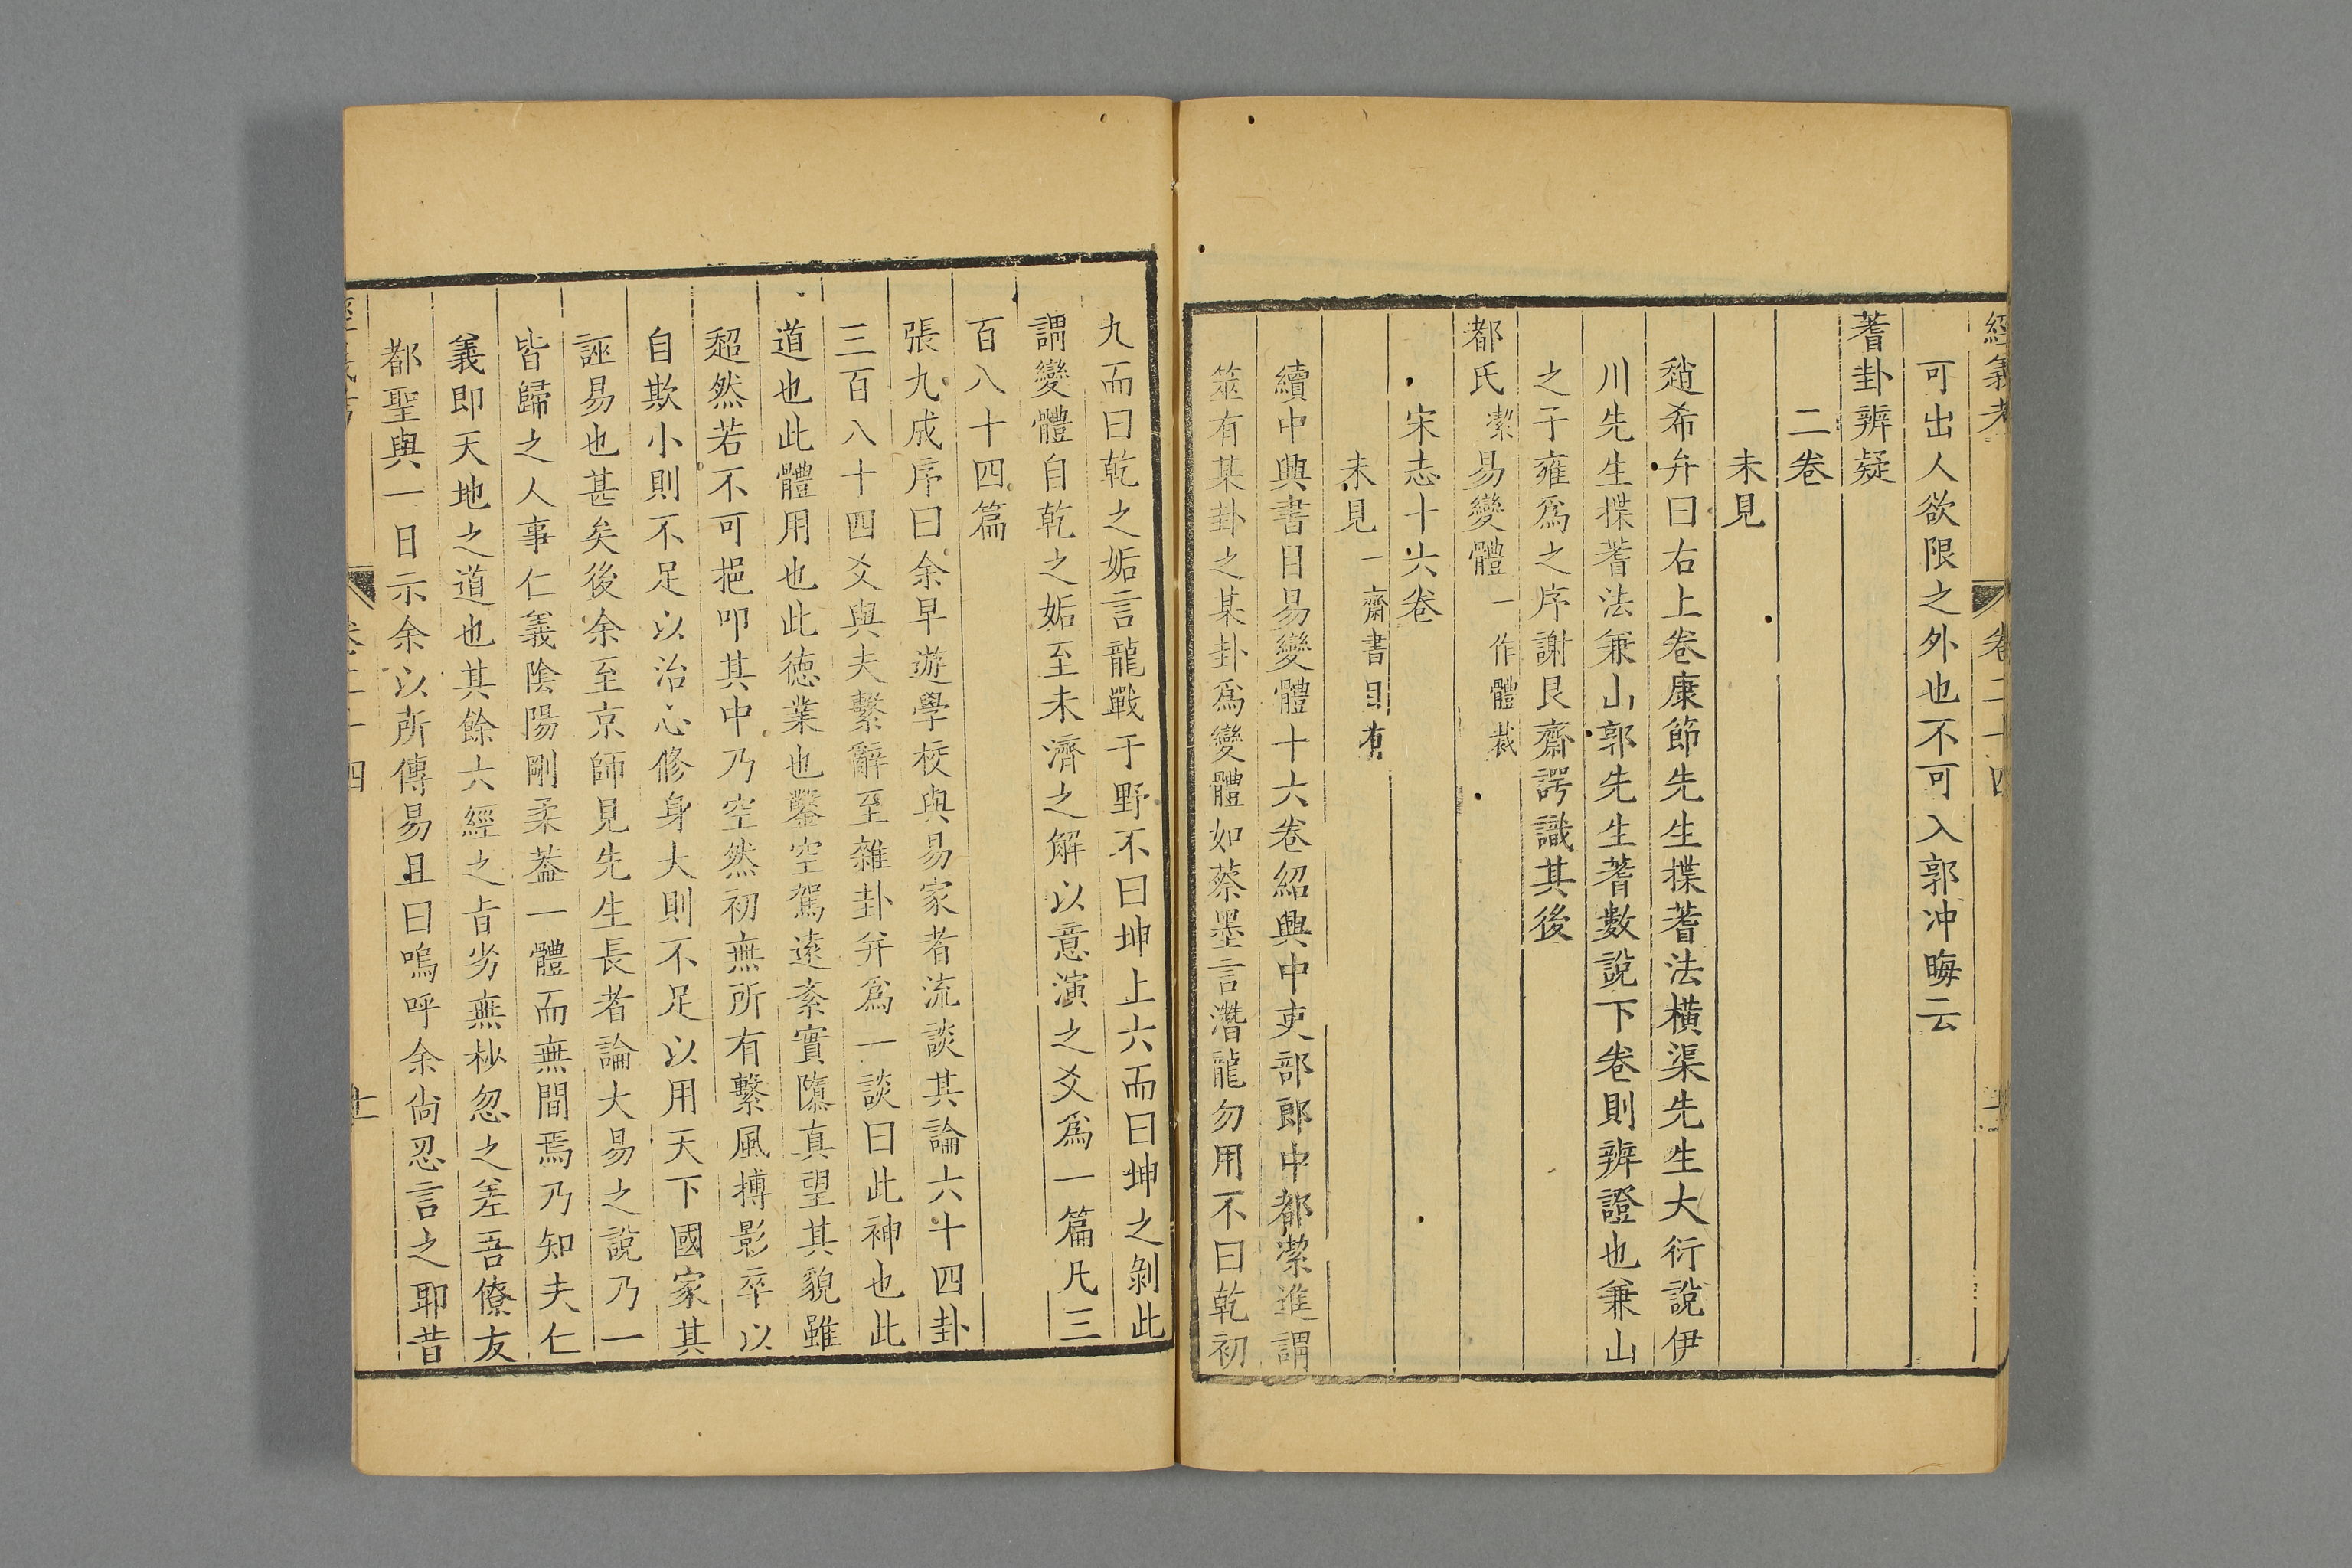 經義考 卷二十四
可出人欲限之外也不可入郭冲晦云
蓍卦辨疑
二卷
未見
趙希弁曰右上卷康節先生揲蓍法橫渠先生大衍說伊
川先生揲蓍法兼山郭先生蓍數說下卷則辨證也兼山
之子雍爲之序謝艮齋諤識其後
都氏潔易變體一作體裁
宋志十六卷
未見一齋書目有
續中興書目易變體十六卷紹興中吏部郎中都潔進謂
筮有某卦之某卦爲變體如蔡墨言潛龍勿用不曰乾初
九而曰乾之姤言龍戰于野不曰坤上六而曰坤之剝此
謂變體自乾之姤至未濟之解以意演之爻爲一篇凡三
百八十四篇
張九成序曰余早遊學校與易家者流談其論六十四卦
三百八十四爻與夫繫辭至雜卦弁爲一談曰此神也此
道也此體用也此徳業也鑿空駕遠紊實隳真望其貌雖
超然若不可挹叩其中乃空然初無所有繫風搏影卒以
自欺小則不足以治心修身大則不足以用天下國家其
誣易也甚矣後余至京師見先生長者論大易之說乃一
皆歸之人事仁義陰陽剛柔葢一體而無間焉乃知夫仁
義即天地之道也其餘六經之㫖劣無杪忽之差吾僚友
都聖與一日示余以所傳易且曰嗚呼余尙忍言之耶昔
卷二十四